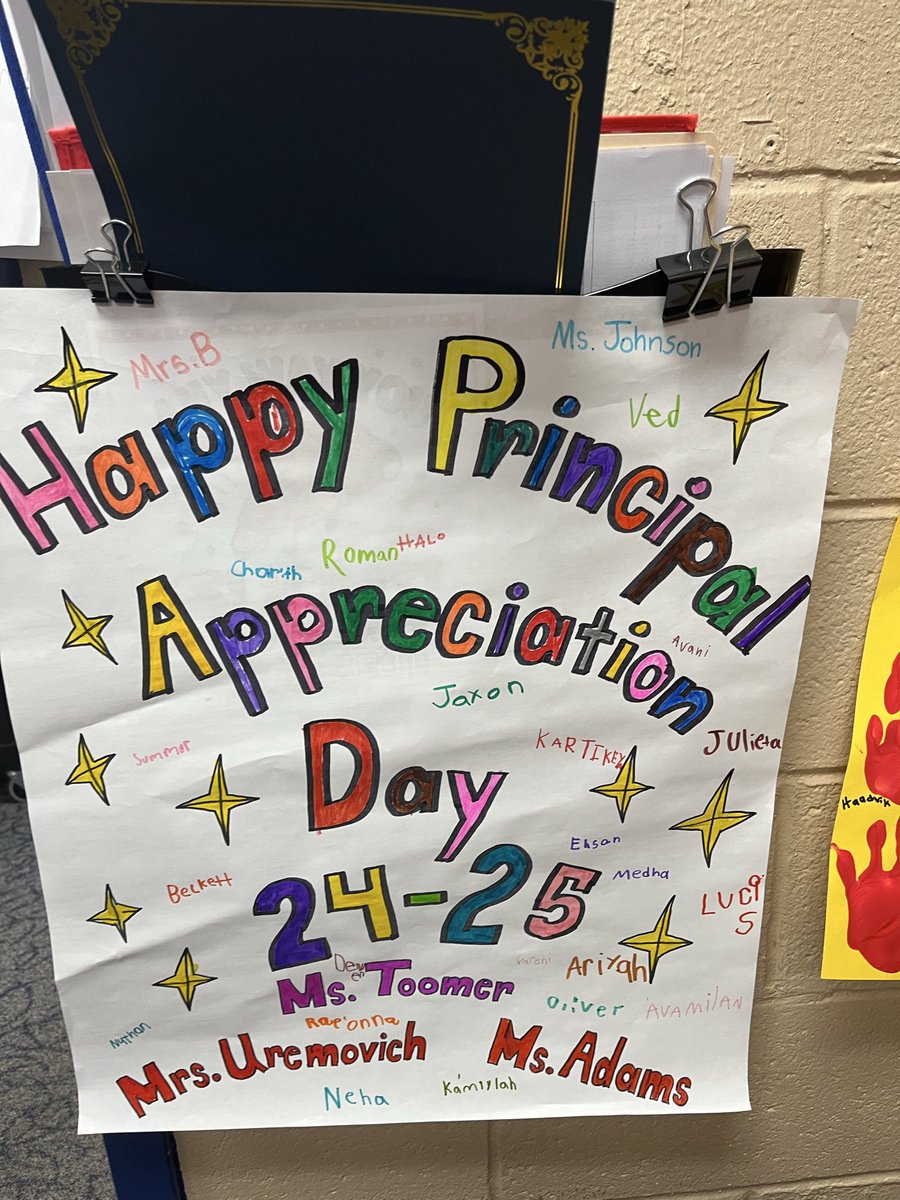 Mrs.B
Ms. Johnson
Ved
Happy Principal
Charith
Roman
HALO
Appreciation
Avani
Jaxon
Summer
KARTIKEY
Julieta
Day
Haadvik
Ehsan
Medha
Beckett
24-25
Ariyah
Ms. Toomer
Oliver
AVAMILAN
Nathan
Rae'onna
Mrs. Uremovich
Ms. Adams
Neha
Kámiylah